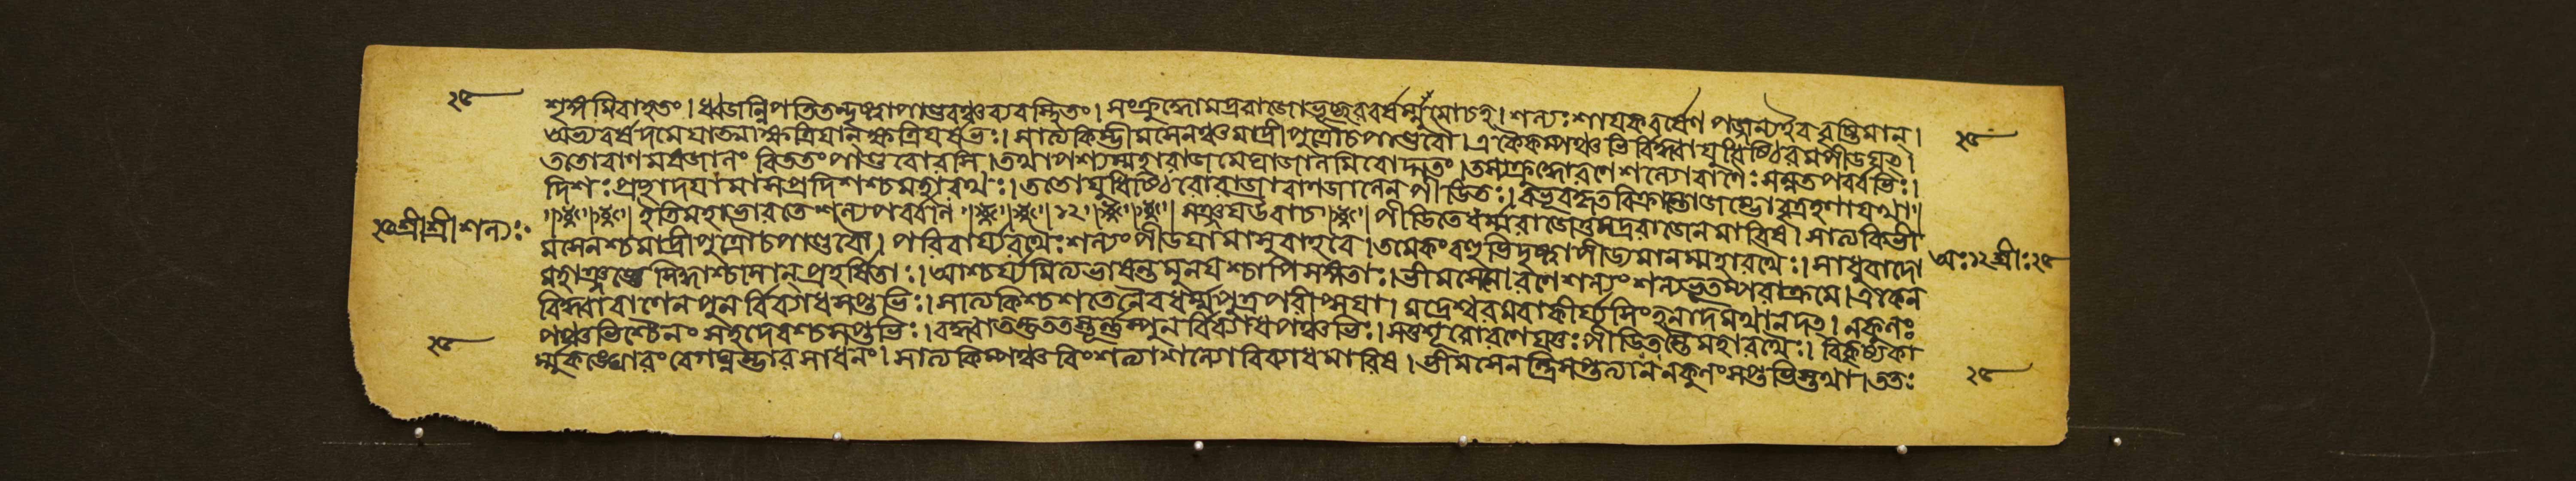 শৃঙ্গমিবাহৃতং। ধ্বজন্নিপতিতন্দৃষ্ট্বাপাণ্ডবঞ্চব্যবস্থিতং। সংক্রুদ্ধোমদ্ররাজোভূচ্ছরবর্ষম্মুমোচহ। শল্যঃশায়কবর্ষেণ পর্জ্জন্যইববৃষ্টিমান্।
অভ্যবর্ষদমেয়াত্মা ক্ষত্রিয়ান্ ক্ষত্রিয়র্ষভঃ। সাত্যকিম্ভীমসেনঞ্চমাদ্রীপুত্রৌচপাণ্ডবৌ। একৈকম্পঞ্চভির্বিদ্ধ্বাযুধিষ্ঠিরমপীডয়ৎ।
ততোবাণময়ঞ্জালং বিততংপাণ্ডবোরসি।তথাপশ্যম্মহারাজমেঘাজালমিবোদ্গতং। তস্যক্রুদ্ধোরণেশল্যোবাণৈঃসন্নতপর্ব্বভিঃ।
দিশঃপ্রছাদয়ামাসপ্রদিশশ্চমহারথঃ। ততোযুধিষ্ঠিরোরাজাবাণজালেনপীডিতঃ। বভূবহৃতবিক্রান্তোজম্ভোবৃত্রহণাযথা।
ইতিমহাভারতেশল্যপর্ব্বণি ১২ সঞ্জয়উবাচ। পীডিতেধর্ম্মরাজেতুমদ্ররাজেনমারিষ। সাত্যকির্ভী
২৫শ্রীশ্রীশল্যঃ
মসেনশ্চমাদ্রীপুত্রৌচপাণ্ডবৌ। পরিবার্য্যরথৈঃশল্যংপীডয়ামাসুরাহবে। তমেকংবহুভির্দৃষ্ট্বাপীড্যমানম্মহারথৈঃ। সাধুবাদো
মহাঞ্জজ্ঞেসিদ্ধাশ্চাসন্ প্রহর্ষিতাঃ। আশ্চর্য্যমিত্যভাষন্তমুনয়শ্চাপিসঙ্গতাঃ। ভীমসেনোরণেশল্যংশল্যভূতম্পরাক্রমে। একেন
অঃ১২শ্রীঃ২৫
বিদ্ধ্বাবাণেনপুনর্বিব্যাধসপ্তভিঃ। সাত্যকিশ্চশতেনৈবধর্ম্মপুত্রপরীপ্সয়া। মদ্রেশ্বরমবাকীর্য্যসিংহনাদমথানদৎ। নকুলঃ
পঞ্চভিশ্চৈনং সহদেবশ্চসপ্তভিঃ। বিদ্ধ্বাতন্তুততস্তূর্ণম্পুনর্বিব্যাধপঞ্চভিঃ। সতুশূরোরণেযত্তঃপীডিতস্তৈর্মহারথৈঃ। বিকৃষ্যকা
র্ম্মুকঙ্ঘোরং বেগঘ্নম্ভারসাধনং। সাত্যকিম্পঞ্চবিংশত্যাশল্যোবিব্যাধমারিষ। ভীমসেনন্ত্রিসপ্তত্যানকুলংসপ্তভিস্তথা। ততঃ